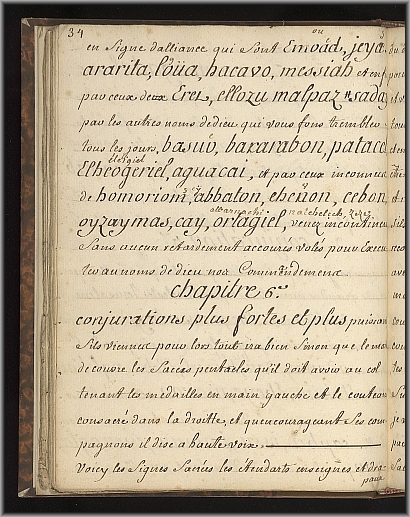 34
ou
en signe dalliance qui sont Emoäd, jeya
ararita, lôüa, hacavo, messiah et enf
par ceux deux Eret, ellozu malpaz sada
par les autres noms de dieu qui vous fons trembler
tous les jours, basuö, baxarabon, patacè
Elheogeriel, aguacai, et par ceux inconnus
de homoriom, abbaton, eheñon, cebon
oyzaymas, cay, orlagiel, venez incontinen
sans aucun retardement accourés volés pour Execu
tés au noms de dieu nos Commendemens
chapitre 6.e
conjurations plus fortes et plus puissan
sils viennent pour lors tout ira bien sinon que le ma
decouvre les sacrés pentacles qu'il doit avoir au col
tenant les médailles en main gauche et le couteau
consacré dans la droitte, et quencourageant ses com
pagnons il dise a haute voix
Voicy les signes sacrés les étendarts enseignes et dra
peaux